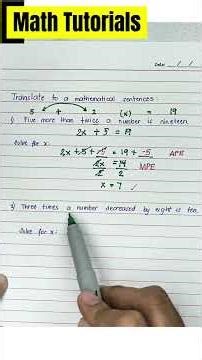 Math Tutorials
Date: __/__/__
Translate to a mathematical sentences:
5 + 2 (x) = 19
1) Five more than twice a number is nineteen
2x + 5 = 19
Solve for x:
2x + 5 + -5 = 19 + -5 APE
2x = 14 MPE
2 2
x = 7 /
2) Three times a number decreased by eight is ten
Solve for x: